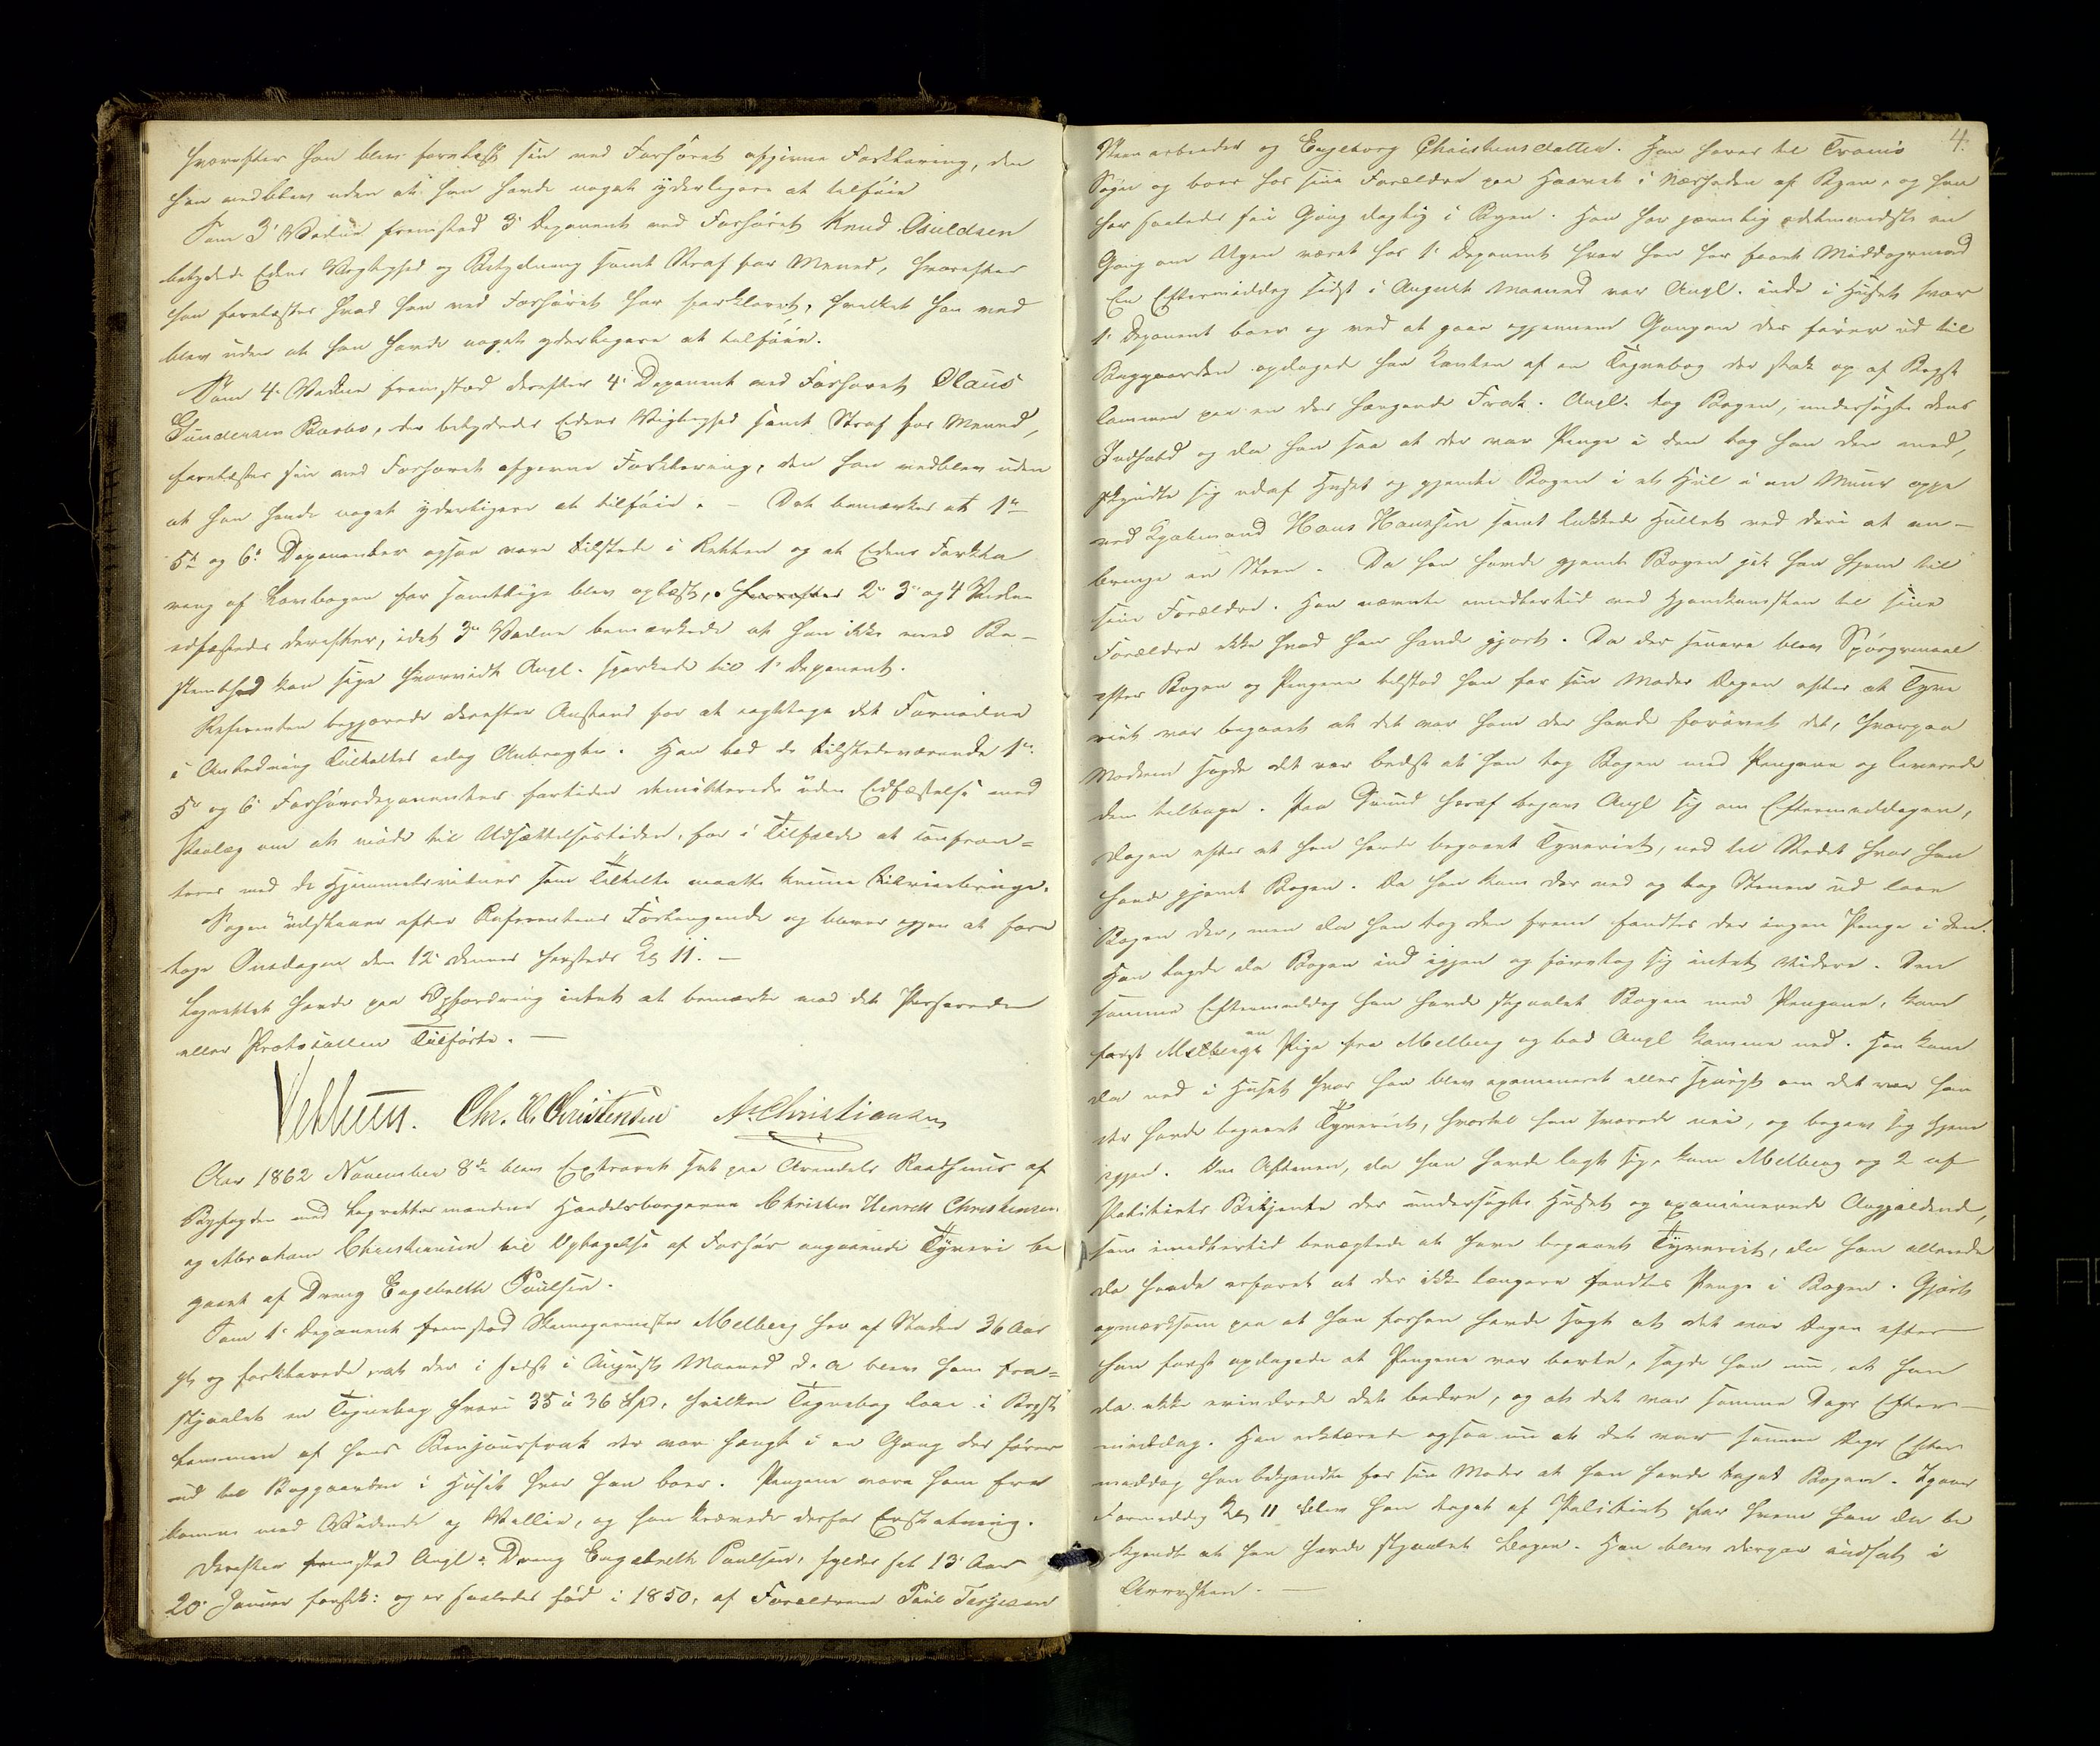 hvorefter han blev forelæst sin ved Forhøret afgivne Forklaring, den
han vedblev uden at han havde noget yderligere at tilføie
Som 3' Vidne fremstod 3' Deponent ved Forhøret Knud Osuldsen
betydedes Edens Vigtighed og Betydning samt Straf for Meneed, hvorefter
han forelæstes hvad han ved Forhøret har forklaret, hvilket han ved
blev uden at han havde noget yderligere at tilføie.
Som 4' Vidne fremstod derefter 4' Deponent ved Forhøret Olaus
Gundersen Barbo, der betydedes Edens Vigtighed samt Straf for Meneed,
forelæstes sin ved Forhøret afgivne Forklaring, den han vedblev uden
at han havde noget yderligere at tilføie. – Det bemærkes at 1ste
5te og 6te Deponenter ogsaa vare tilstede i Retten og at Edens Forkla
ring af Lovbogen for samtlige blev oplæst, Hvorefter 2' 3' og 4 Vidne
edfæstedes derefter, idet 3' Vidne bemærkede at han ikke med Be-
stemthed kan sige hvorvidt Angl. sparkede til 1' Deponent.
Referenten begjærede derefter Anstand for at iagttage det Fornødne
i Anledning Tiltaltes idag Anbragte. Han bad de tilstedeværende 1ste
5te og 6' Forhørsdeponenter fortiden dimitterede uden Edfæstelse med
Paalæg om at møde til Udsættelsestiden, for i Tilfælde at confron=
teres med de Hjemmelsvidner som Tiltalte maatte kunne tilveiebringe.
Sagen udstaaer efter Referentens Forlangende og bliver igjen at fore
tage Onsdagen den 12' dennes hersteds Kl 11. –
Lagrettet havde paa Opfordring intet at bemærke mod det Passerede
eller Protocollen Tilførte. –
Chr. H. Christensen A. Christiansen
Aar 1862 November 8de blev Extraret sat paa Arendals Raadhuus af
Byfogden med Lagrettesmændene Handelsborgerne Christen Henrik Christensen
og Abraham Christiansen til Optagelse af Forhør angaaende Tyveri be
gaaet af Dreng Engebreth Paulsen.
Som 1' Deponent fremstod Melberg her af Staden 36 Aar
gl. og forklarede, at der i sidst i August Maaned d. A blev ham fra=
stjaalet en Tegnebog hvori 35 à 36 Spd, hvilken Tegnebog laae i Bryst
lommen af hans Bonjourfrak der var hængt i en Gang der fører
ud til Baggaarden i Huset hvor han boer. Pengene vare ham fra
kommet mod Vidende og Villie, og han krævede derfor Erstatning.
Derefter fremstod Angl: Dreng Engebreth Paulsen, fylder sit 13' Aar
20' Januar førstk: og er saaledes født i 1850, af Forældrene Paul Terjesen
4.
Steenarbeider og Engeborg Christensdatter. Han hører til Tromø
Sogn og boer hos sine Forældre paa Haavet i Nærheden af Byen, og han
har saaledes sin Gang daglig i Byen. Han har jævnlig idetmindste en
Gang om Ugen været hos 1' Deponent hvor han har faaet Middagsmad
En Eftermiddag sidst i August Maaned var Angl. inde i Huset hvor
1' Deponent boer og ved at gaae igjennem Gangen der fører ud til
Baggaarden opdaged han Kanten af en Tegnebog der stak op af Bryst
lommen paa en der hængende Frak. Angl. tog Bogen, undersøgte dens
Indhold og da han saa at der var Penge i den tog han den med,
skyndte sig udaf Huset og gjemte Bogen i et Hul i en Muur oppe
ved Kjøbmand Hans Hanssen samt lukkede Hullet ved deri at an-
bringe en Steen. Da han havde gjemt Bogen gik han hjem til
sine Forældre. Han nævnte imidlertid ved Hjemkomsten til sine
Forældre ikke hvad han havde gjort. Da der senere blev Spørgsmaal
efter Bogen og Pengene tilstod han for sin Moder Dagen efter at Tyve
riet var begaaet at det var ham der havde forøvet det, hvorpaa
Moderen sagde det var bedst at han tog Bogen med Pengene og leverede
dem tilbage. Paa Grund heraf begav Angl sig om Eftermiddagen,
Dagen efter at han havde begaaet Tyveriet, ned til Stedet hvor han
havde gjemt Bogen. Da han kom der ned og tog Stenen ud laae
Bogen der, men da han tog den frem fandtes der ingen Penge i den.
Han lagde da Bogen ind igjen og foretog sig intet videre. Den
samme Eftermiddag han havde stjaalet Bogen med Pengene, kom
først en Pige fra Melberg og bad Angl komme ned. Han kom
da ned i Huset hvor han blev examineret eller spurgt om det var ham
der havde begaaet Tyveriet, hvortil han svarede nei, og begav sig hjem
igjen. Om Aftenen, da han havde lagt sig, kom Melberg og 2 af
Politiets Betjente der undersøgte Huset og examinerede Angjældende,
som imidlertid benægtede at have begaaet Tyveriet, da han allerede
da havde erfaret at der ikke længere fandtes Penge i Bogen. Gjort
opmærksom paa at han forhen havde sagt at det var Dagen efter
han først opdagede at Pengene var borte, sagde han nu, at han
da ikke erindrede det bedre, og at det var samme Dags Efter-
middag. Han erklærede ogsaa nu at det var samme Dags Efter
middag han bekjendte for sin Moder at han havde taget Bogen. Igaar
Formiddag Kl 11 blev han taget af Politiet for hvem han da be
kjendte at han havde stjaalet Bogen. Han blev derpaa indsat i
Arresten. –